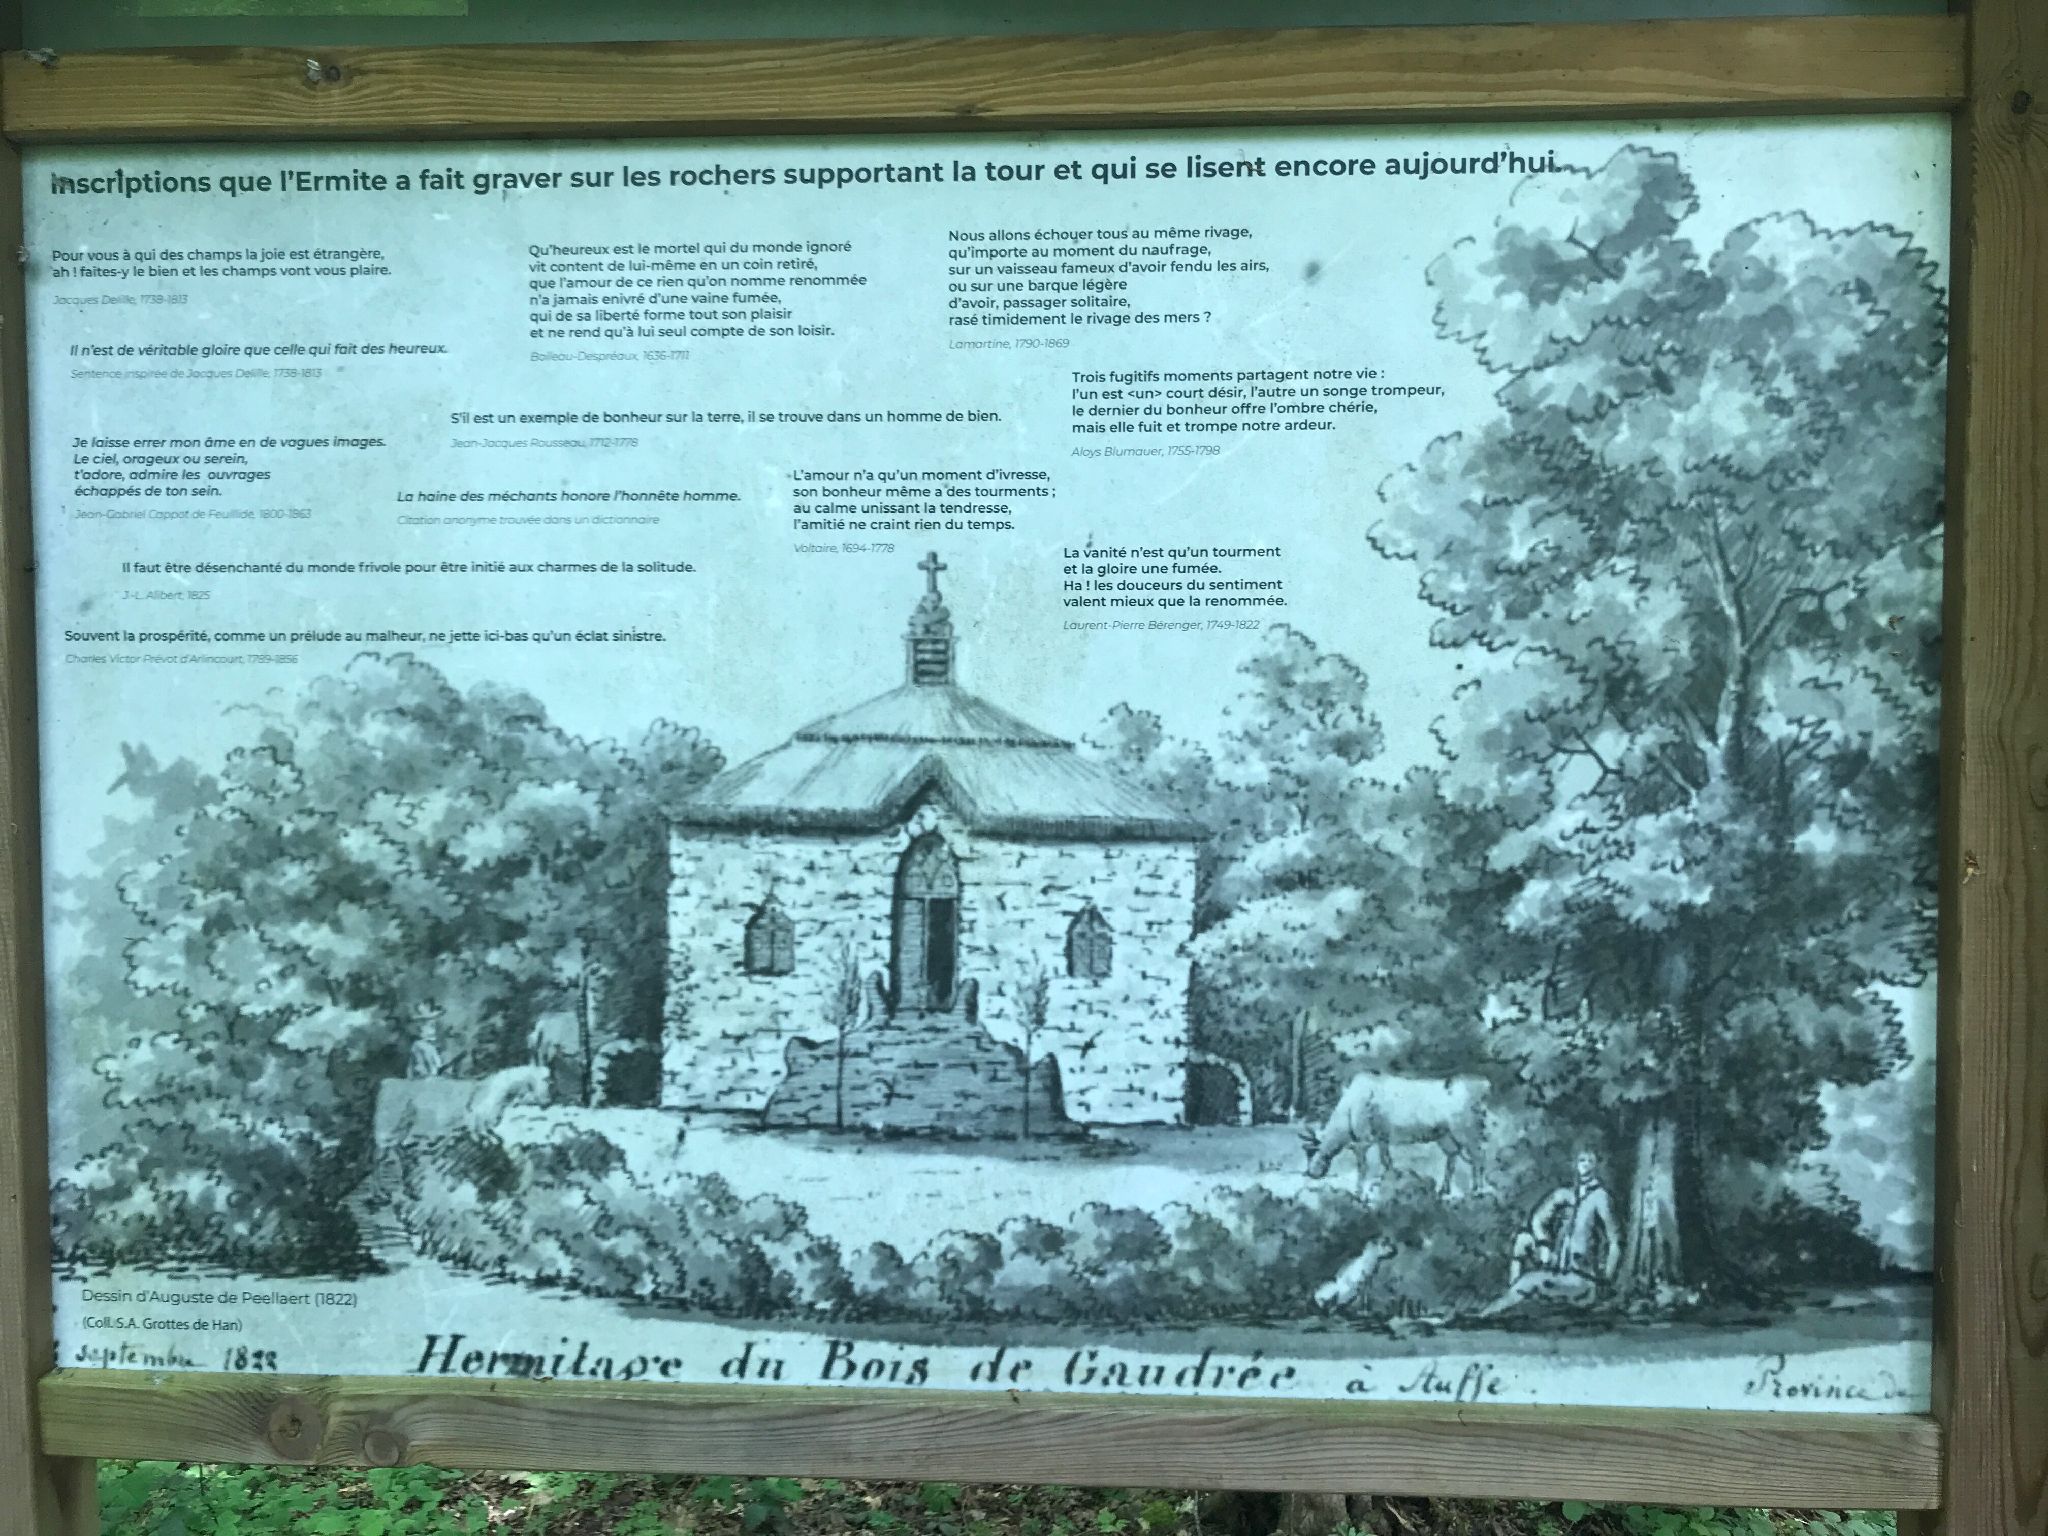 Inscriptions que l'Ermite a fait graver sur les rochers supportant la tour et qui se lisent encore aujourd'hui.
Pour vous à qui des champs la joie est étrangère,
ah ! faites-y le bien et les champs vont vous plaire.
Jacques Delille, 1738-1813
Il n'est de véritable gloire que celle qui fait des heureux.
Sentence inspirée de Jacques Delille, 1738-1813
Je laisse errer mon âme en de vagues images.
Le ciel, orageux ou serein,
t'adore, admire les ouvrages
échappés de ton sein.
Jean-Gabriel Cappot de Feuillide, 1800-1863
Qu'heureux est le mortel qui du monde ignoré
vit content de lui-même en un coin retiré,
que l'amour de ce rien qu'on nomme renommée
n'a jamais enivré d'une vaine fumée,
qui de sa liberté forme tout son plaisir
et ne rend qu'à lui seul compte de son loisir.
Boileau-Despréaux, 1636-1711
Nous allons échouer tous au même rivage,
qu'importe au moment du naufrage,
sur un vaisseau fameux d'avoir fendu les airs,
ou sur une barque légère
d'avoir, passager solitaire,
rasé timidement le rivage des mers ?
Lamartine, 1790-1869
S'il est un exemple de bonheur sur la terre, il se trouve dans un homme de bien.
Jean-Jacques Rousseau, 1712-1778
Trois fugitifs moments partagent notre vie :
l'un est <un> court désir, l'autre un songe trompeur,
le dernier du bonheur offre l'ombre chérie,
mais elle fuit et trompe notre ardeur.
Aloys Blumauer, 1755-1798
La haine des méchants honore l'honnête homme.
Citation anonyme trouvée dans un dictionnaire
L'amour n'a qu'un moment d'ivresse,
son bonheur même a des tourments ;
au calme unissant la tendresse,
l'amitié ne craint rien du temps.
Voltaire, 1694-1778
Il faut être désenchanté du monde frivole pour être initié aux charmes de la solitude.
J.-L. Alibert, 1825
La vanité n'est qu'un tourment
et la gloire une fumée.
Ha ! les douceurs du sentiment
valent mieux que la renommée.
Laurent-Pierre Bérenger, 1749-1822
Souvent la prospérité, comme un prélude au malheur, ne jette ici-bas qu'un éclat sinistre.
Charles Victor Prévot d'Arlincourt, 1789-1856
Dessin d'Auguste de Peellaert (1822)
(Coll. S.A. Grottes de Han)
septembre 1822
Hermitage du Bois de Gaudrée à Auffe.
Province de